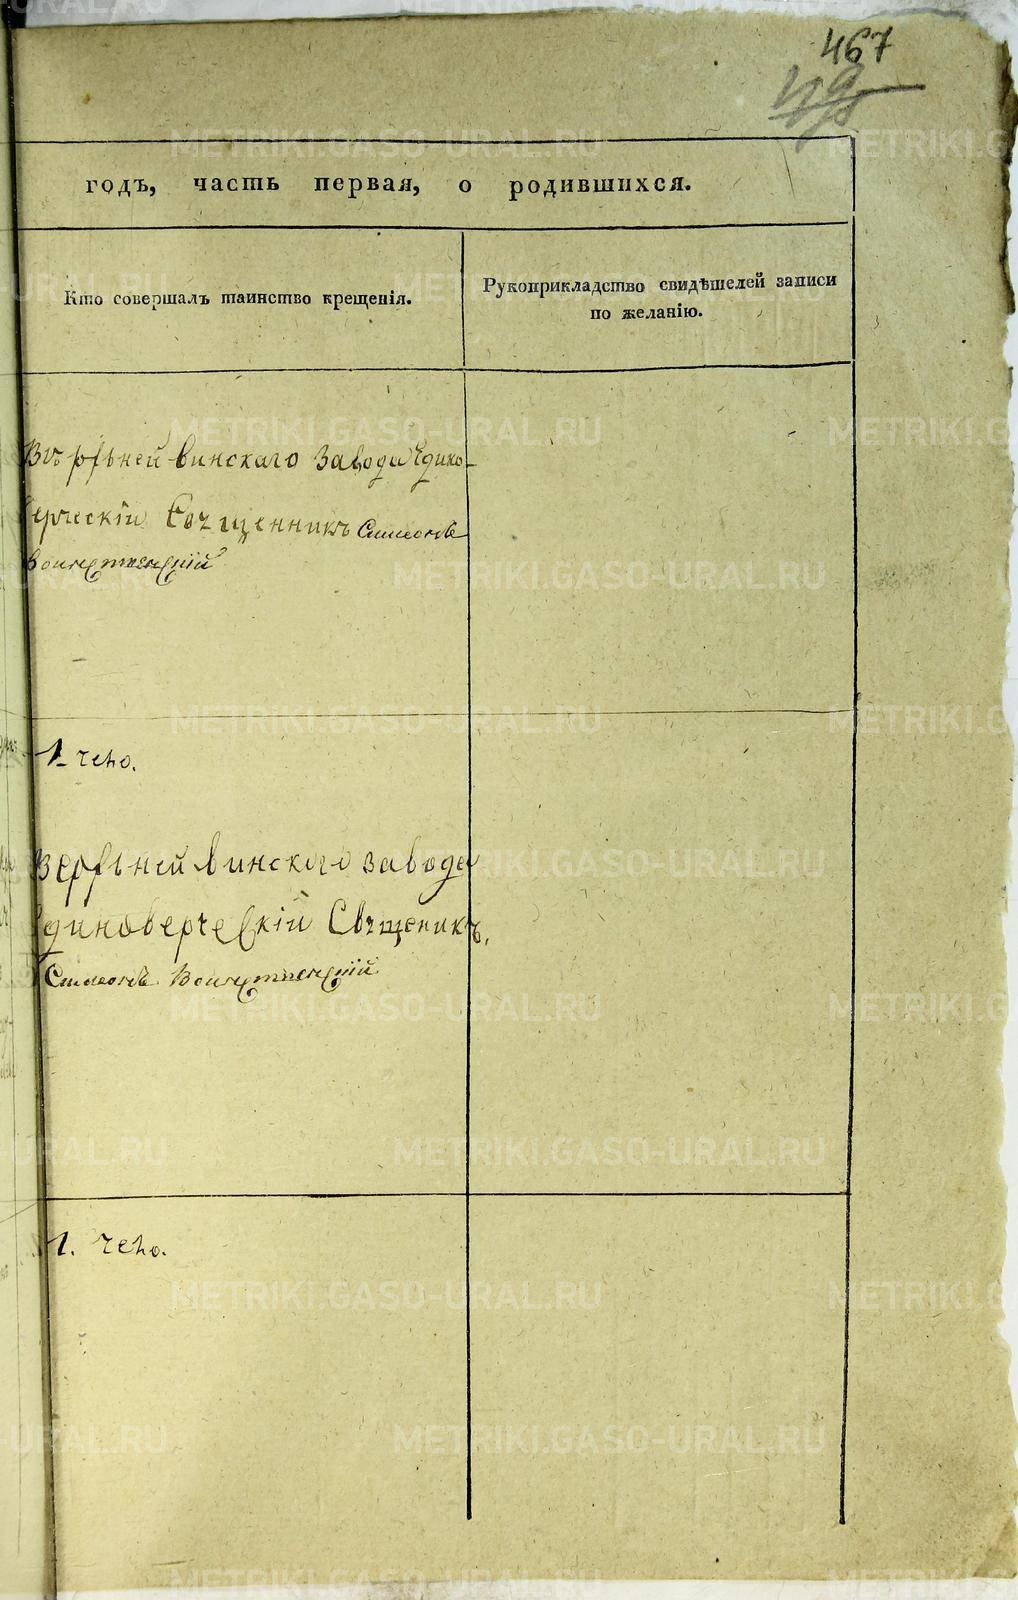 467
годъ, часть первая, о родившихся.
Кто совершалъ таинство крещенія.
Рукоприкладство свидѣтелей записи
по желанію.
Верхнейвинскаго Завода Едино-
верческій Священникъ Симеонъ
1. чело.
Верхнейвинскаго завода
Единоверческій Свщеникъ,
Симеонъ
1. чело.
METRIKI.GASO-URAL.RU